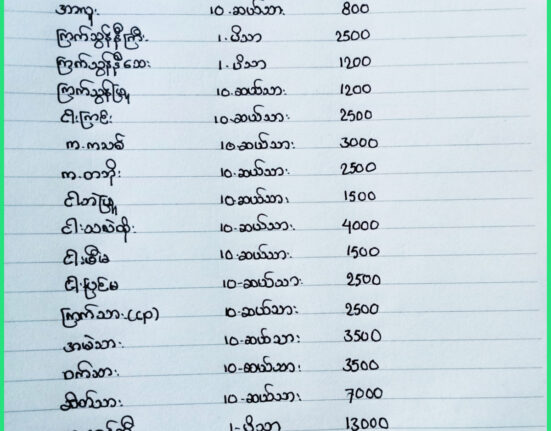 အာလူး 10-ဆယ်သား 800
ကြက်သွန်နီကြီး 1-ပိဿာ 2500
ကြက်သွန်နီသေး 1-ပိဿာ 1200
ကြက်သွန်ဖြူ 10-ဆယ်သား 1200
ငါးကြင်း 10-ဆယ်သား 2500
က.ကသစ် 10-ဆယ်သား 3000
က.တဘိုး 10-ဆယ်သား 2500
ငါးဘဲဖြူ 10-ဆယ်သား 1500
ငါးသလဲထိုး 10-ဆယ်သား 4000
ငါးမြီးမ 10-ဆယ်သား 1500
ငါးပြင်မ 10-ဆယ်သား 2500
ကြက်သား(cp) 10-ဆယ်သား 2500
အမဲသား 10-ဆယ်သား 3500
ဝက်သား 10-ဆယ်သား 3500
ဆိတ်သား 10-ဆယ်သား 7000
1-ပိဿာ 13000